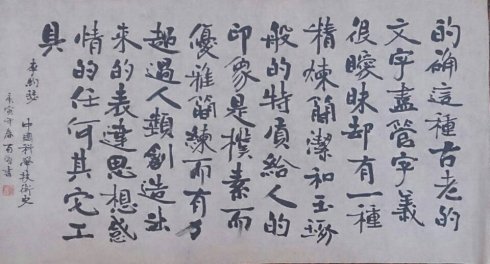 的确這種古老的
文字盡管字義
很曖昧却有一種
精煉簡潔和玉琢
般的特質給人的
印象是樸素而
優雅簡練而有力
超過人類創造出
來的表達思想感
情的任何其它工
具
李約瑟 中國科學技術史
庚寅年春 書